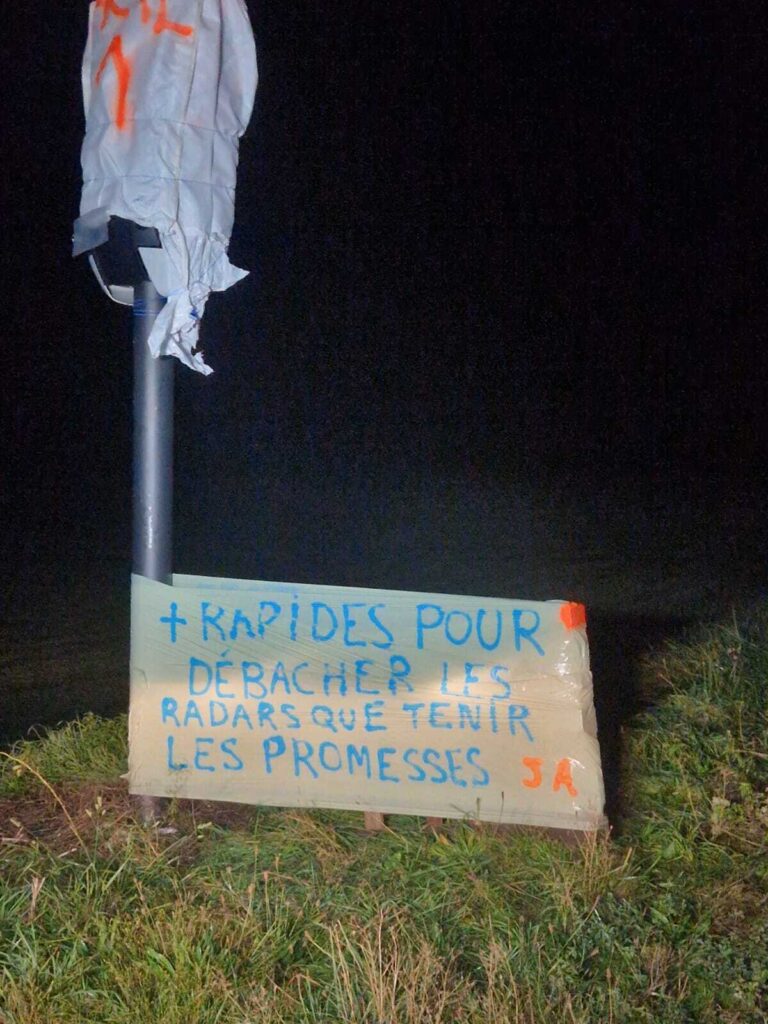 1
+ RAPIDES POUR
DÉBACHER LES
RADARS QUE TENIR
LES PROMESSES JA